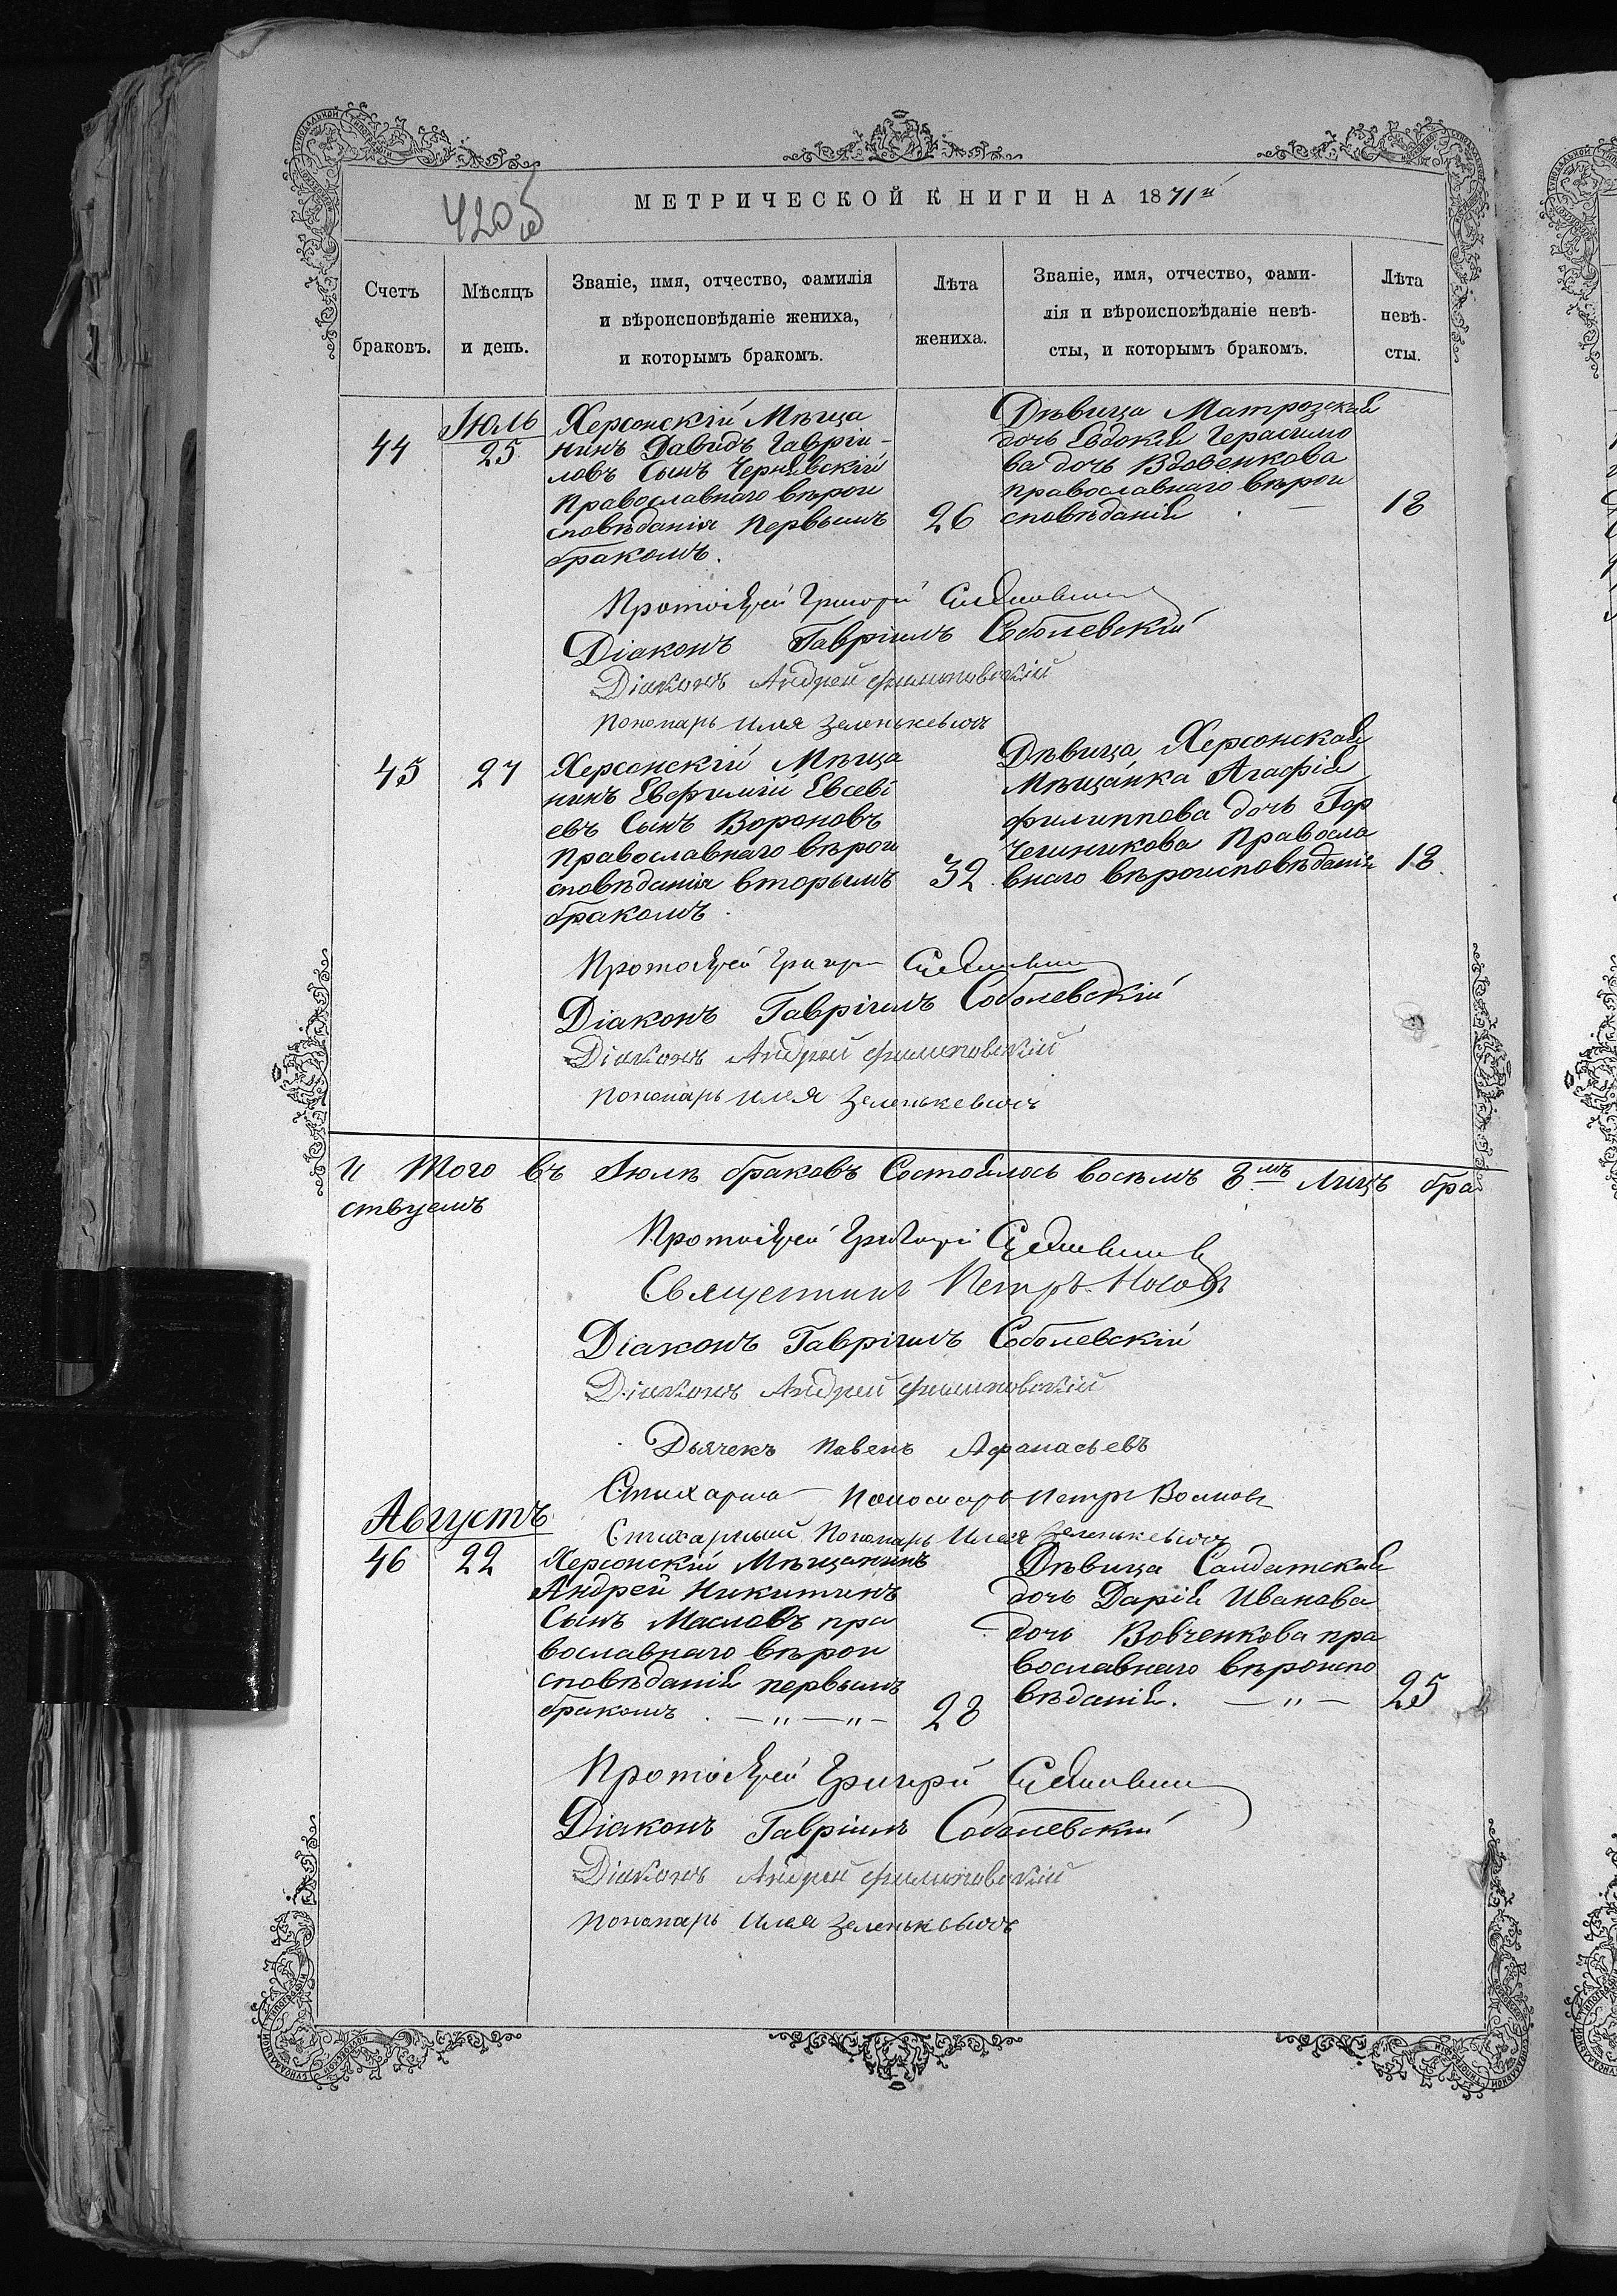 420 об
МЕТРИЧЕСКОЙ КНИГИ НА 1871й
Счетъ браковъ.
Мѣсяцъ и день.
Званіе, имя, отчество, фамилія
и вѣроисповѣданіе жениха,
и которымъ бракомъ.
Лѣта жениха.
Званіе, имя, отчество, фами-
лія и вѣроисповѣданіе невѣ-
сты, и которымъ бракомъ.
Лѣта невѣ-
сты.
44
Іюль
25
Херсонскій Мѣща
нинъ Давидъ Гавріи-
ловъ Сынъ Чернявскій
Православнаго вѣрои
сповѣданія Первымъ
бракомъ.
26
Дѣвица Матрозская
дочь Евдокія Герасимо
ва дочь Вдовенкова
православнаго вѣрои
сповѣданія
18
Протоіерей Григорій
Діаконъ Гавріилъ Соболевскій
Діаконъ Андрей Филиповскій
Пономарь Илія Зеленькевичъ
45
27
Херсонскій Мѣща
нинъ Евфимій Евсеві
евъ Сынъ Вороновъ
Православнаго вѣрои
сповѣданія вторымъ
бракомъ.
32
Дѣвица Херсонская
Мѣщанка Агафія
Филиппова дочь Гор
чешникова Правосла
внаго вѣроисповѣданія
18.
Протоіерей Григорій
Діаконъ Гавріилъ Соболевскій
Діаконъ Андрей Филиповскій
Пономарь Илія Зеленькевичъ
И Того въ Іюлѣ браковъ Состоялось восѣмъ 8мъ лицъ бра
ствуемъ
Протоіерей Григорій
Священникъ Петръ Носовъ
Діаконъ Гавріилъ Соболевскій
Діаконъ Андрей Филиповскій
Дьячекъ Павелъ Афанасьевъ
Пономарь Петръ
Стихарный Пономарь Илія Зеленькевичъ
Августъ
46
22
Херсонскій Мѣщанинъ
Андрей Никитинъ
Сынъ Масловъ пра
вославнаго вѣрои
сповѣданія первымъ
бракомъ. —„—„—
28
Дѣвица Салдатская
дочь Дарія Иванова
дочь Вовченкова пра
вославнаго вѣроиспо
вѣданія. —„—
25
Протоіерей Григорій
Діаконъ Гавріилъ Соболевскій
Діаконъ Андрей Филиповскій
Пономарь Илія Зеленькевичъ